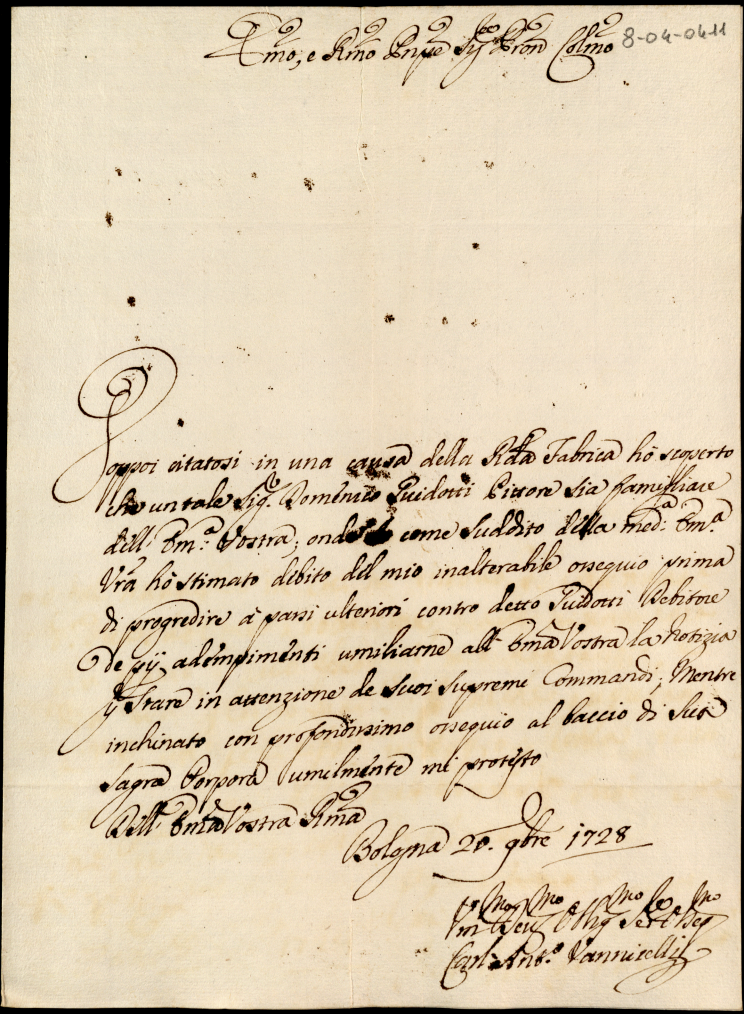 Emo, e Rmo Pnpe Sig.re Pron Colmo
8-04-0411
Doppoi citatosi in una causa della Rda Fabrica hò scoperto
che un tale Sig.r Domenico Guidotti Pittore sia famigliare
dell' Em.a Vostra; onde come suddito della med.a Em.a
Vrã hò stimato debito del mio inalterabile ossequio prima
di progredire à passi ulteriori contro detto Guidotti Debitore
De pij adempimenti umiliarne all' Emã Vostra la Notizia
p stare in attenzione de suoi supremi Commandi; Mentre
inchinato con profondissimo ossequio al baccio di Sua
Sagra Porpora umilmente mi protesto
Dell' Emã Vostra Rmã
Bologna 20. 9bre 1728
Vm.o Obligmo Ser.e
Carl' Ant.o Vannicelli